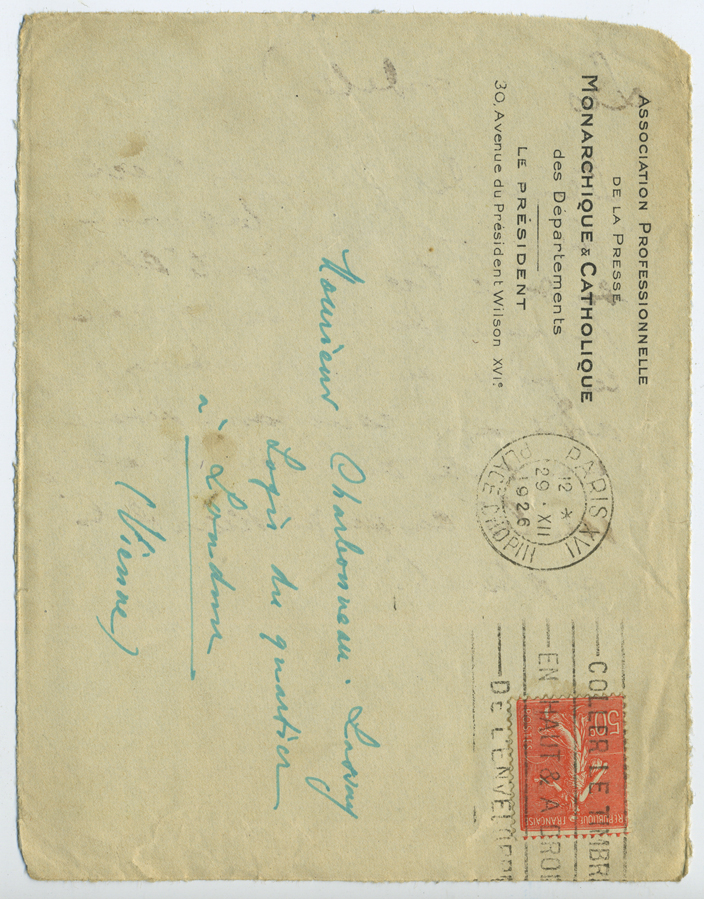 ASSOCIATION PROFESSIONNELLE
DE LA PRESSE
MONARCHIQUE & CATHOLIQUE
des Départements
LE PRÉSIDENT
30, Avenue du Président Wilson XVIe
PARIS XVI
12 *
29 . XII
1926
PLACE CHOPIN
COLLER LE TIMBR
EN HAUT & A DROI
DE L'ENVELOPP
50c
REPUBLIQUE FRANÇAISE
Monsieur Charbonneau
Logis du quartier
à Loudun
(Vienne)